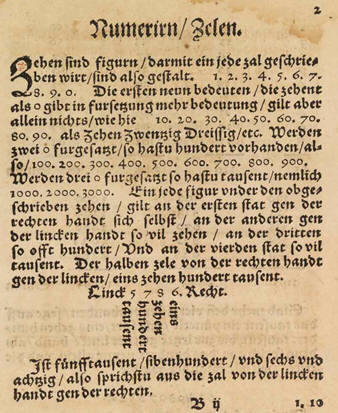 2
Numerirn/ Zelen.
Zehen sind figurn/ darmit ein jede zal geschrie-
ben wirt/ sind also gestalt. 1. 2. 3. 4. 5. 6. 7.
8. 9. 0. Die ersten neun bedeuten/ die zehent
als 0 gibt in fursetzung mehr bedeutung/ gilt aber
allein nichts/ wie hie 10. 20. 30. 40. 50. 60. 70.
80. 90. als Zehen Zwentzig Dreissig/ etc. Werden
zwei 0 furgesatzt/ so hastu hundert vorhanden/ al-
so/ 100. 200. 300. 400. 500. 600. 700. 800. 900.
Werden drei 0 furgesatzt so hastu tausent/ nemlich
1000. 2000. 3000. Ein jede figur vnder den obge-
schrieben zehen/ gilt an der ersten stat gen der
rechten handt sich selbst/ an der anderen gen
der lincken handt so vil zehen/ an der dritten
so offt hundert/ Vnd an der vierden stat so vil
tausent. Der halben zele von der rechten handt
gen der lincken/ eins zehen hundert tausent.
Linck 5 7 8 6. Recht.
eins
zehen
hundert
tausent
Jst fünfftausent/ sibenhundert/ vnd sechs vnd
achtzig/ also sprichstu aus die zal von der lincken
handt gen der rechten,
B ij 1. 10